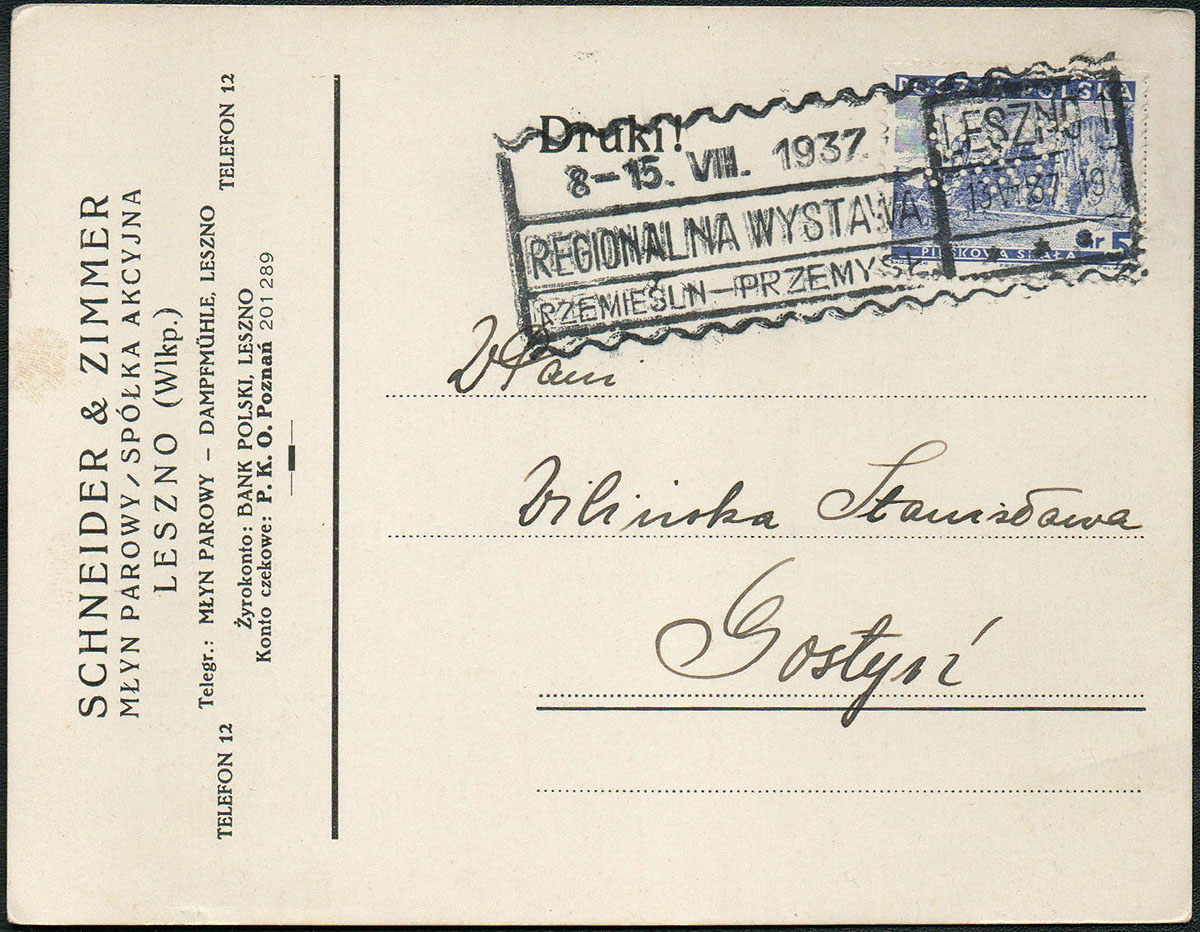 SCHNEIDER & ZIMMER
MŁYN PAROWY / SPÓŁKA AKCYJNA
LESZNO (Wlkp.)
Telegr.: MŁYN PAROWY – DAMPFMÜHLE, LESZNO
TELEFON 12 TELEFON 12
Żyrokonto: BANK POLSKI, LESZNO
Konto czekowe: P. K. O. Poznań 201289
Druki!
8–15. VIII. 1937.
REGIONALNA WYSTAWA
RZEMIEŚLN–PRZEMYSŁ.
LESZNO 1
POCZTA POLSKA
PIESKOWA SKAŁA
Gr 5
WPani
Wilińska Stanisława
Gostyń